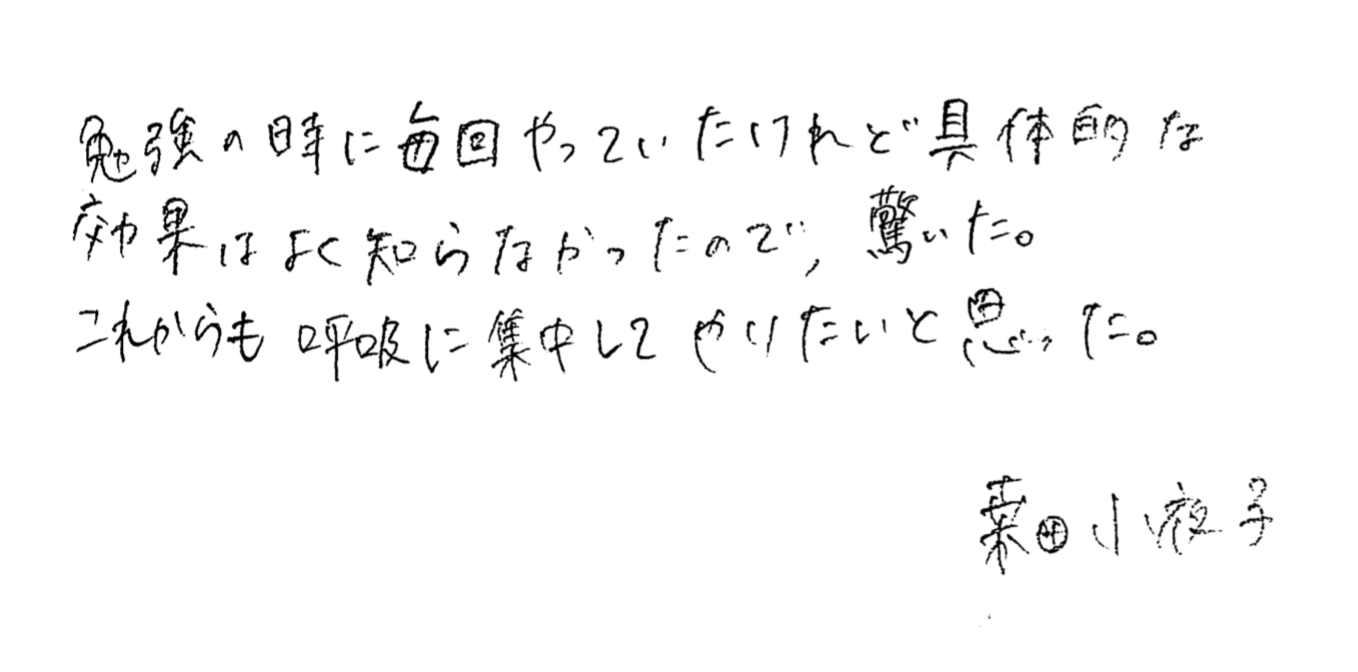 勉強の時に毎回やっていたけれど具体的な
効果はよく知らなかったので, 驚いた。
これからも呼吸に集中してやりたいと思った。
田小夜子